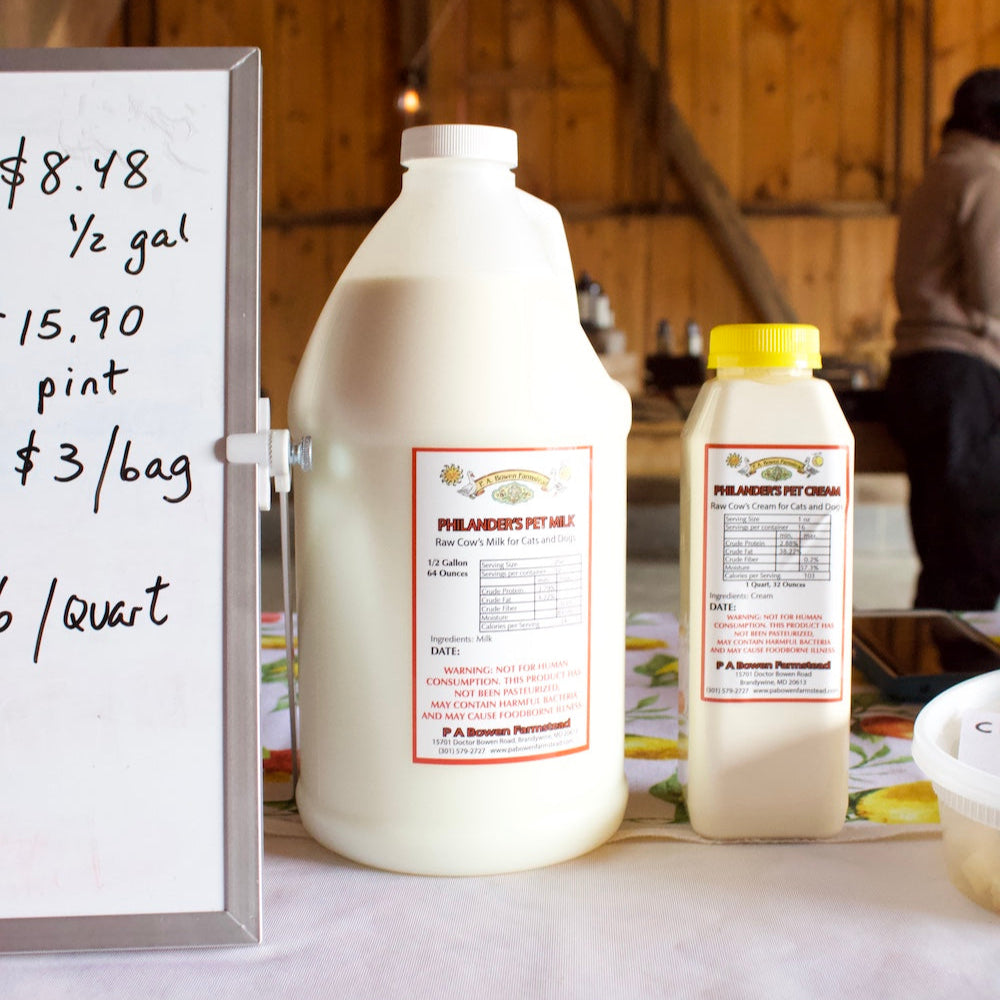 $8.48
1/2 gal
15.90
pint
$3/bag
/Quart
P. A. Bowen Farmstead
PHILANDER'S PET MILK
Raw Cow's Milk for Cats and Dogs
1/2 Gallon
64 Ounces
Serving Size
Servings per container
Crude Protein
Crude Fat
Crude Fiber
Moisture
Calories per Serving
Ingredients: Milk
DATE:
WARNING: NOT FOR HUMAN
CONSUMPTION. THIS PRODUCT HAS
NOT BEEN PASTEURIZED,
MAY CONTAIN HARMFUL BACTERIA
AND MAY CAUSE FOODBORNE ILLNESS
P A Bowen Farmstead
15701 Doctor Bowen Road, Brandywine, MD 20613
(301) 579-2727 www.pabowenfarmstead.com
P. A. Bowen Farmstead
PHILANDER'S PET CREAM
Raw Cow's Cream for Cats and Dogs
Serving Size 1 oz
Servings per container 16
min. max.
Crude Protein 2.88%
Crude Fat 38.22%
Crude Fiber 0.2%
Moisture 57.3%
Calories per Serving 103
1 Quart, 32 Ounces
Ingredients: Cream
DATE:
WARNING: NOT FOR HUMAN
CONSUMPTION. THIS PRODUCT HAS
NOT BEEN PASTEURIZED,
MAY CONTAIN HARMFUL BACTERIA
AND MAY CAUSE FOODBORNE ILLNESS
P A Bowen Farmstead
15701 Doctor Bowen Road
Brandywine, MD 20613
(301) 579-2727 www.pabowenfarmstead.com
C